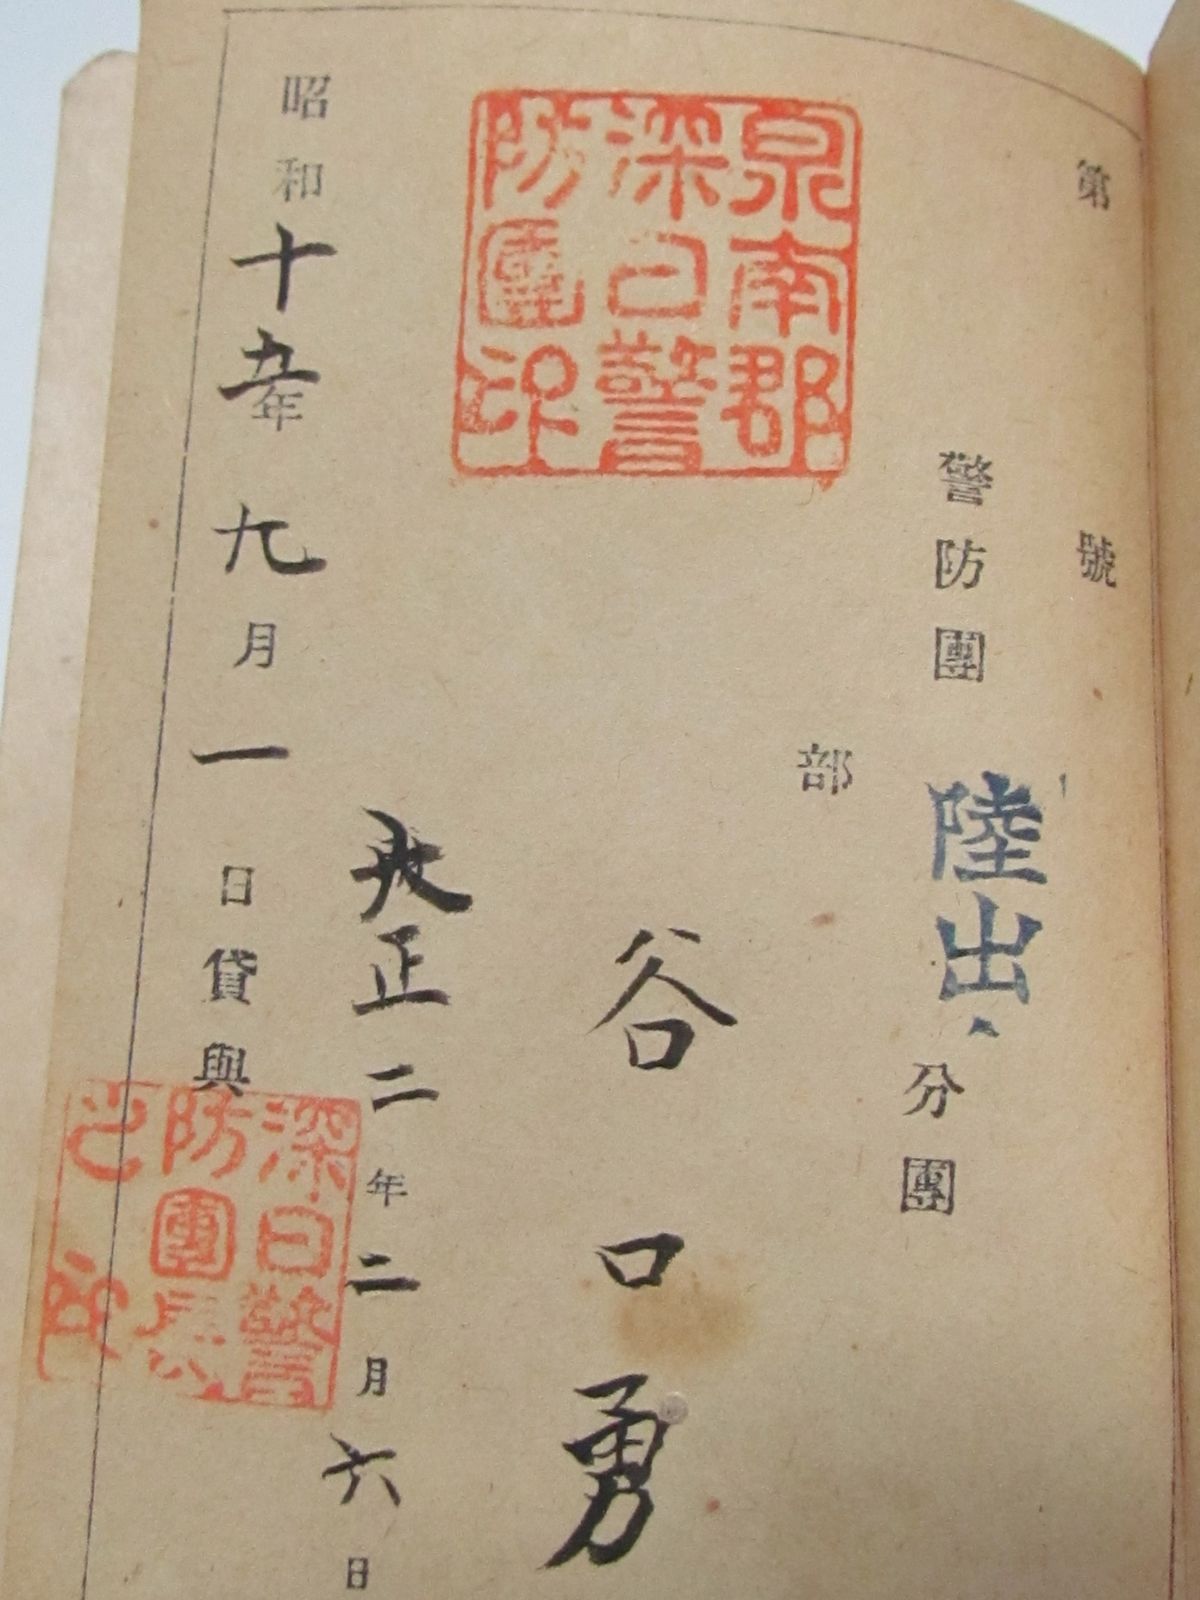 第 號
警防團 陸出 分團
部
谷口勇
大正二年二月六日
昭和十五年九月一日貸與
泉南郡
深日警
防團印
深日警
防團長
之印